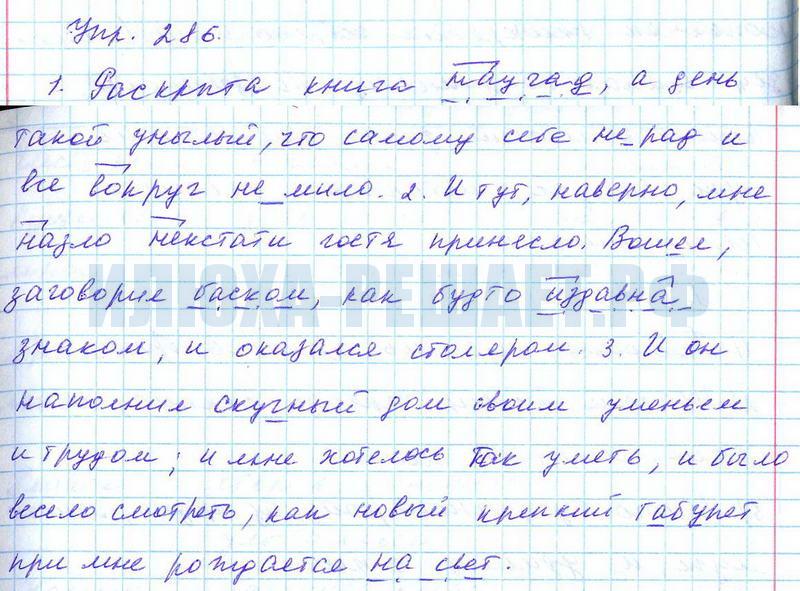 Упр. 286.
1. Раскрыта книга наугад, а день
такой унылый, что самому себе не рад и
все вокруг не мило. 2. И тут, наверно, мне
назло некстати гостя принесло. Вошел,
заговорил баском, как будто издавна
ИЛЮХА-РЕШАЕТ.РФ
знаком, и оказался столяром. 3. И он
наполнил скучный дом своим уменьем
и трудом; и мне хотелось так уметь, и было
весело смотреть, как новый крепкий табурет
при мне рождается на свет.